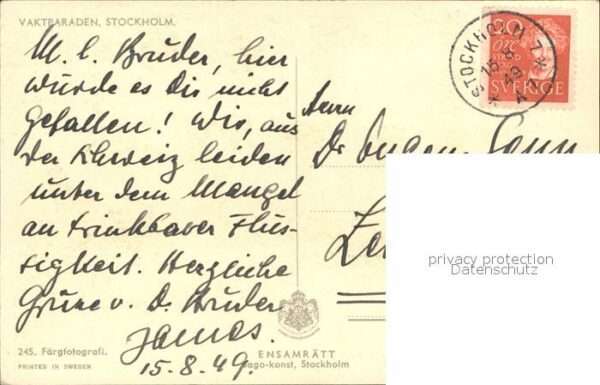 VAKTPARADEN, STOCKHOLM.
M. l. Bruder, hier
würde es Dir nicht
gefallen! Wir, aus
der Schweiz leiden
unter dem Mangel
an trinkbarer Flüs-
sigkeit. Herzliche
Grüsse v. D. Bruder
James.
15.8.49.
Herrn
Dr Eugen
STOCKHOLM 7
15.8.49
20
ÖRE
SVERIGE
privacy protection
Datenschutz
245. Färgfotografi.
PRINTED IN SWEDEN
ENSAMRÄTT
Sago-konst, Stockholm